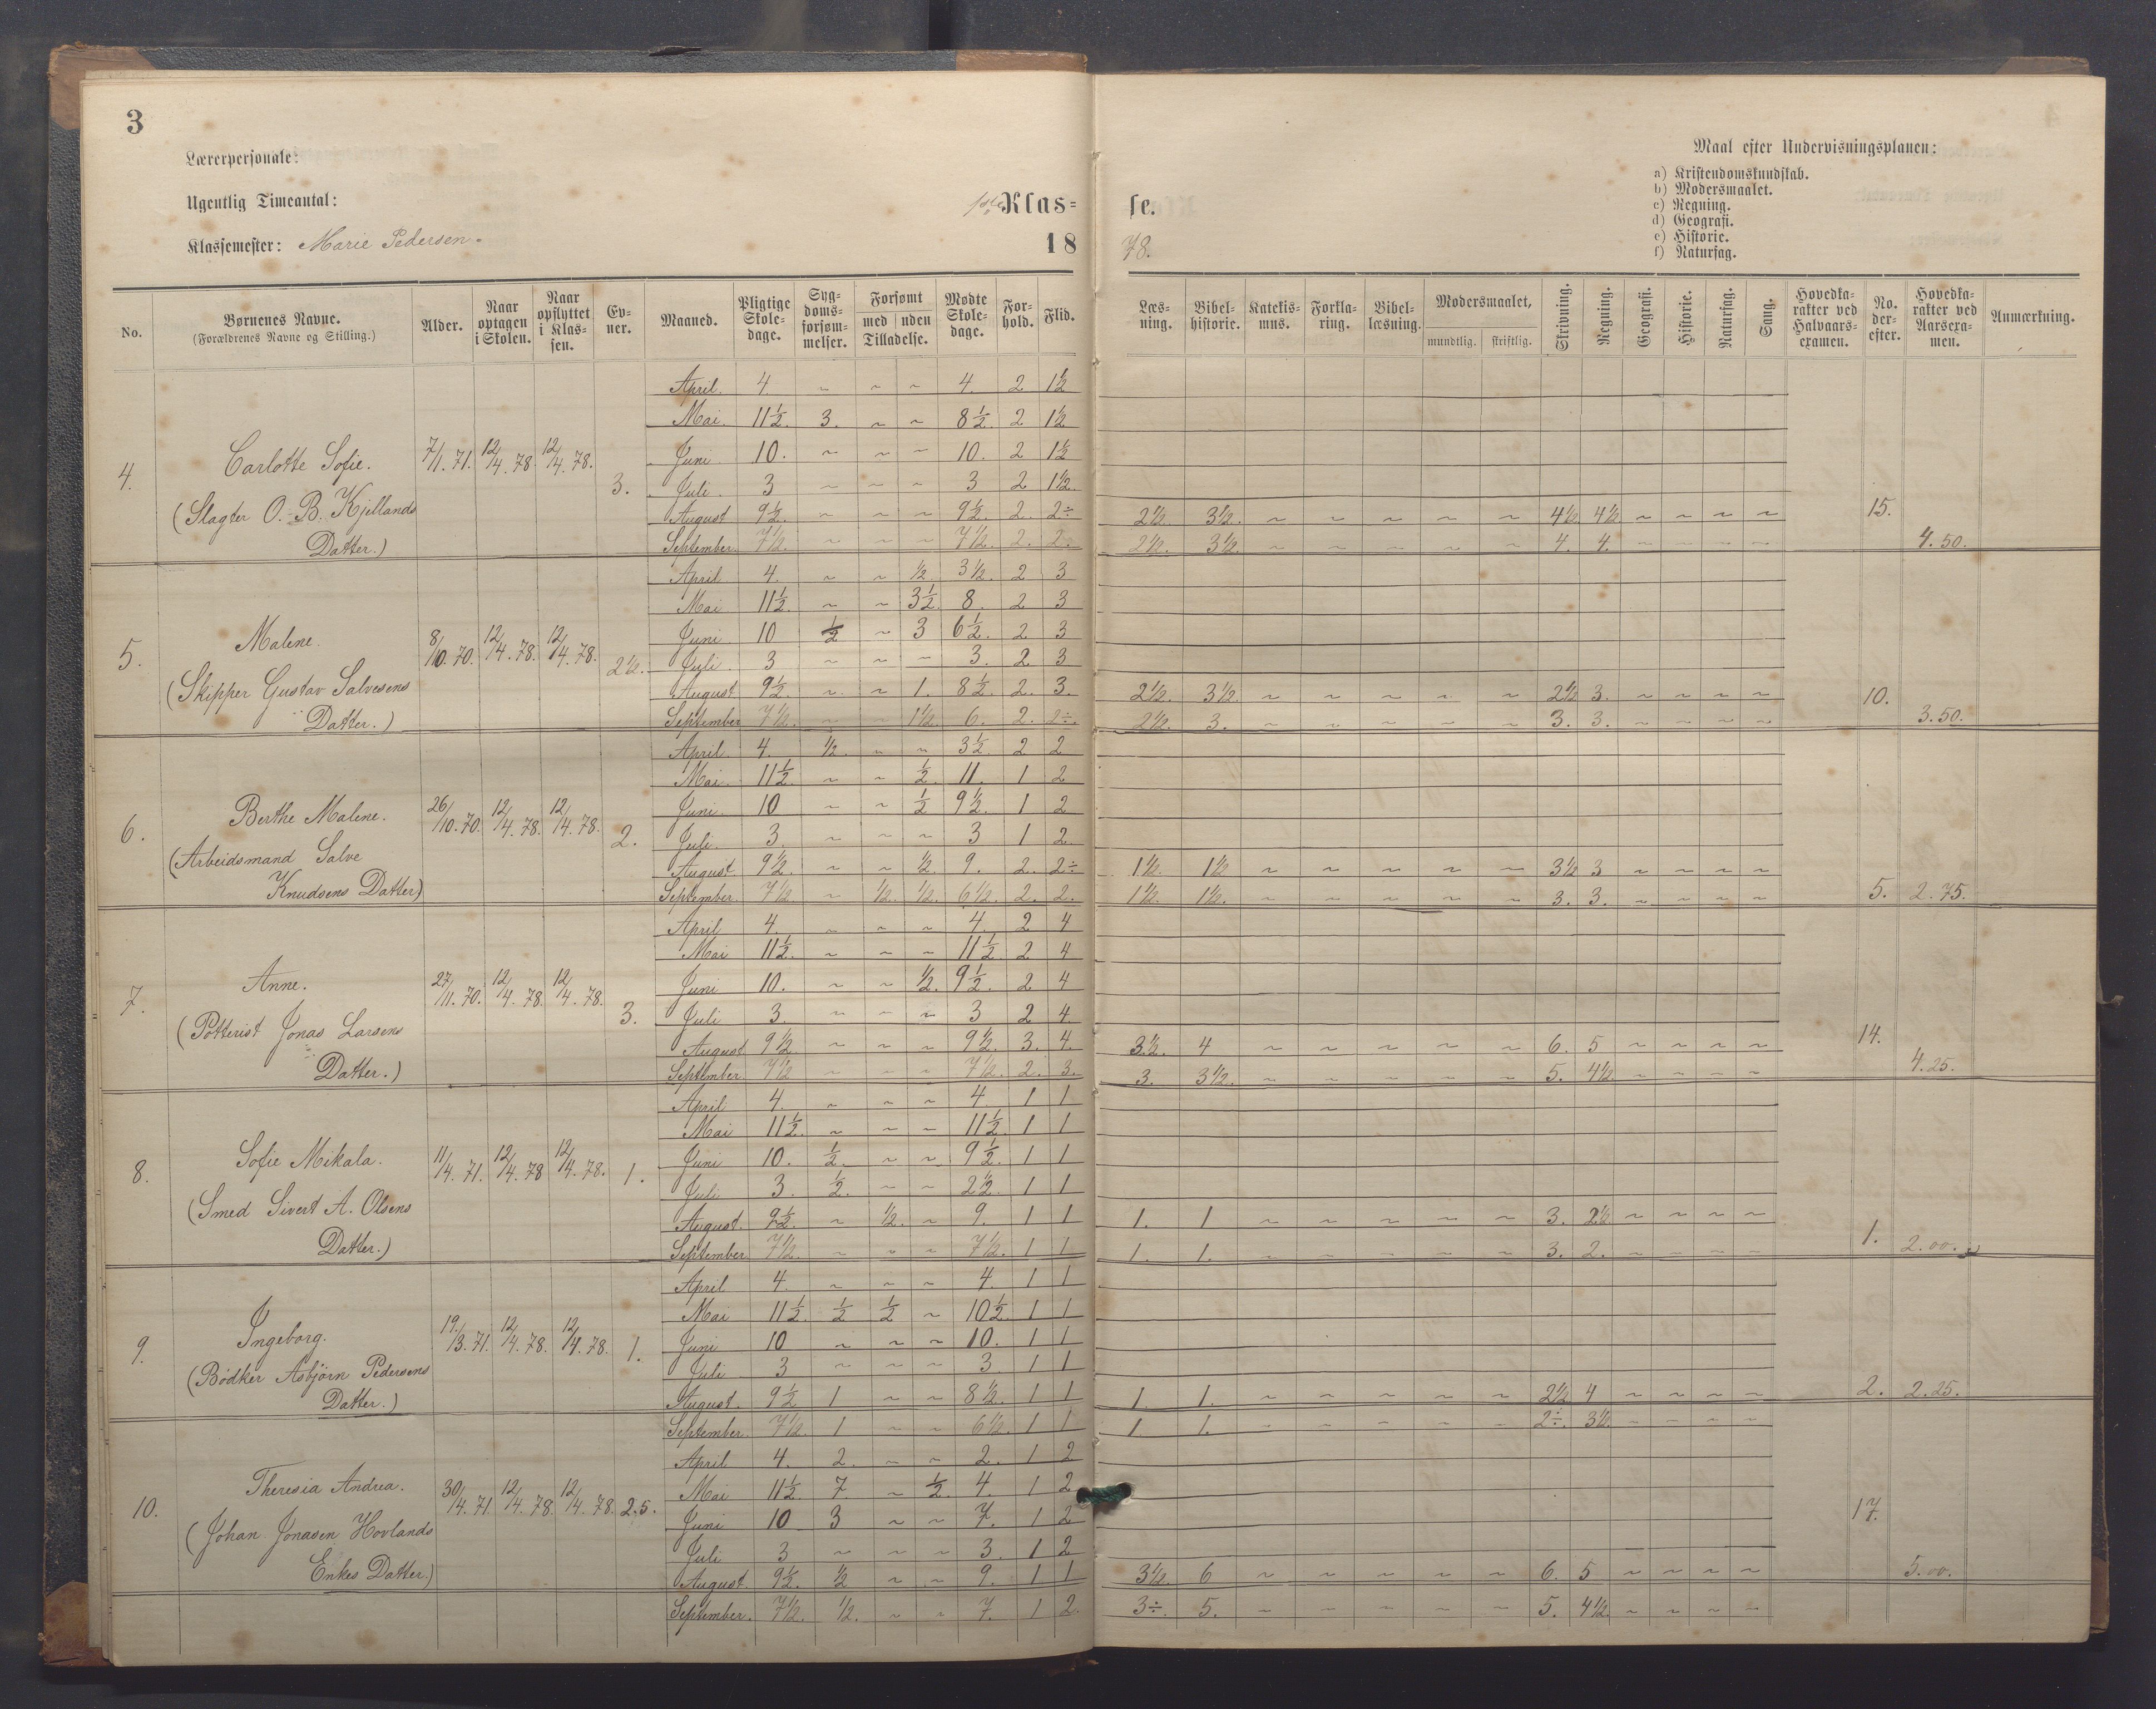 3
Lærerpersonale:
Ugentlig Timeantal:
Klassemester: Marie Pedersen.
1ste Klas=
18
No. | Børnenes Navne. (Forældrenes Navne og Stilling.) | Alder. | Naar optagen i Skolen. | Naar opflyttet i Klassen. | Evner. | Maaned. | Pligtige Skoledage. | Sygdomsforsømmelser. | Forsømt med / uden Tilladelse. | Mødte Skoledage. | Forhold. | Flid.
April. 4. ~ ~ ~ 4. 2 1½
Mai. 11½. 3. ~ ~ 8½. 2 1½
4. Carlotte Sofie. 7/1. 71. 12/4. 78. 12/4. 78. 3. Juni 10. ~ ~ ~ 10. 2 1½
Juli. 3 ~ ~ ~ 3 2 1½.
(Slagter O. B. Kjellands August 9½. ~ ~ ~ 9½. 2. 2÷
Datter.) September. 7½. ~ ~ ~ 7½. 2. 2.
April 4. ~ ~ ½. 3½. 2 3
Mai 11½. ~ ~ 3½. 8. 2 3
5. Malene. 8/10. 70. 12/4. 78. 12/4. 78. 2½. Juni. 10 ½ ~ 3 6½. 2 3
Juli. 3 ~ ~ ~ 3. 2 3
(Skipper Gustav Salvesens August 9½. ~ ~ 1. 8½. 2. 3.
Datter.) September 7½. ~ ~ 1½. 6. 2. 2÷.
April. 4. ½. ~ ~ 3½. 2 2
Mai. 11½ ~ ~ ½. 11. 1 2
6. Berthe Malene. 26/10. 70. 12/4. 78. 12/4. 78. 2. Juni. 10 ~ ~ ½ 9½. 1 2
Juli. 3. ~ ~ ~ 3 1 2
(Arbeidsmand Salve August 9½. ~ ~ ½. 9. 2. 2÷
Knudsens Datter) September. 7½ ~ ½. ½. 6½. 2. 2.
April 4. ~ ~ ~ 4. 2 4
Mai 11½. ~ ~ ~ 11½. 2 4
7. Anne. 27/11. 70. 12/4. 78. 12/4. 78. 3. Juni 10. ~ ~ ½. 9½. 2 4
Juli 3. ~ ~ ~ 3 2 4.
(Potterist Jonas Larsens August 9½. ~ ~ ~ 9½. 3. 4.
Datter.) September. 7½ ~ ~ ~ 7½. 2. 3.
April 4. ~ ~ ~ 4 1 1
Mai 11½. ~ ~ ~ 11½. 1 1
8. Sofie Mikala. 11/4. 71. 12/4. 78 12/4. 78. 1. Juni 10. ½. ~ ~ 9½. 1 1
Juli 3. ½. ~ ~ 2½. 1 1
(Smed Sivert A. Olsens August. 9½. ~ ½. ~ 9. 1 1
Datter.) September. 7½. ~ ~ ~ 7½. 1 1
April 4. ~ ~ ~ 4. 1 1
Mai 11½ ½ ½ ~ 10½. 1 1
9. Ingeborg. 19./3. 71. 12/4. 78. 12/4. 78. 1. Juni 10 ~ ~ ~ 10. 1 1
Juli 3 ~ ~ ~ 3. 1 1
(Bødker Asbjørn Pedersens
Datter.) August. 9½ 1 ~ ~ 8½. 1 1
September. 7½. 1 ~ ~ 6½. 1 1
April 4. 2. ~ ~ 2. 1 2
10. Theresia Andrea. 30/4. 71. 12/4. 78. 12/4. 78. 2.5. Mai 11½. 7. ~ ½. 4. 1 2
Juni 10 3 ~ ~ 7. 1 2
(Johan Jonasen Hovlands Juli 3 ~ ~ ~ 3. 1 2
Enkes Datter.) August. 9½. ½ ~ ~ 9. 1 1
September. 7½. ½. ~ ~ 7. 1 2.
se.
78.
Maal efter Undervisningsplanen:
a) Kristendomskundskab.
b) Modersmaalet.
c) Regning.
d) Geografi.
e) Historie.
f) Naturfag.
Læsning. | Bibelhistorie. | Katekismus. | Forklaring. | Bibellæsning. | Modersmaalet, mundtlig. / skriftlig. | Skrivning. | Regning. | Geografi. | Historie. | Naturfag. | Sang. | Hovedkarakter ved Halvaarsexamen. | No. derefter. | Hovedkarakter ved Aarsexamen. | Anmærkning.
2½. 3½. ~ ~ ~ ~ ~ 4½. 4½. ~ ~ ~ ~ 15.
2½. 3½. ~ ~ ~ ~ ~ 4. 4. ~ ~ ~ ~ 4.50.
2½. 3½. ~ ~ ~ ~ ~ 2½ 3. ~ ~ ~ ~ 10.
2½. 3. ~ ~ ~ ~ ~ 3. 3. ~ ~ ~ ~ 3.50.
1½. 1½ ~ ~ ~ ~ ~ 3½ 3 ~ ~ ~ ~
1½. 1½. ~ ~ ~ ~ ~ 3. 3. ~ ~ ~ ~ 5. 2.75.
3½. 4 ~ ~ ~ ~ ~ 6. 5 ~ ~ ~ ~ 14.
3. 3½. ~ ~ ~ ~ ~ 5. 4½. ~ ~ ~ ~ 4.25.
1. 1 ~ ~ ~ ~ ~ 3. 2½ ~ ~ ~ ~ 1.
1. 1. ~ ~ ~ ~ ~ 3. 2. ~ ~ ~ ~ 2.00.
1. 1. ~ ~ ~ ~ ~ 2½ 4 ~ ~ ~ ~ 2. 2.25.
1 1. ~ ~ ~ ~ ~ 2÷. 3½. ~ ~ ~ ~
17.
3½. 6 ~ ~ ~ ~ ~ 6. 5 ~ ~ ~ ~ 5.00.
3÷. 5. ~ ~ ~ ~ ~ 5. 4½. ~ ~ ~ ~